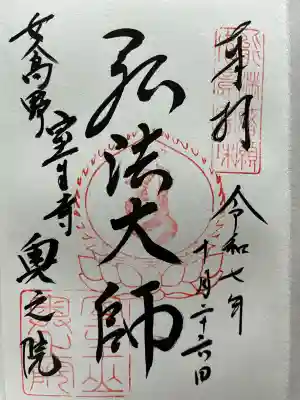 奉拝
令和七年
十月二十六日
弘法大師
女高野
室生寺
奥之院